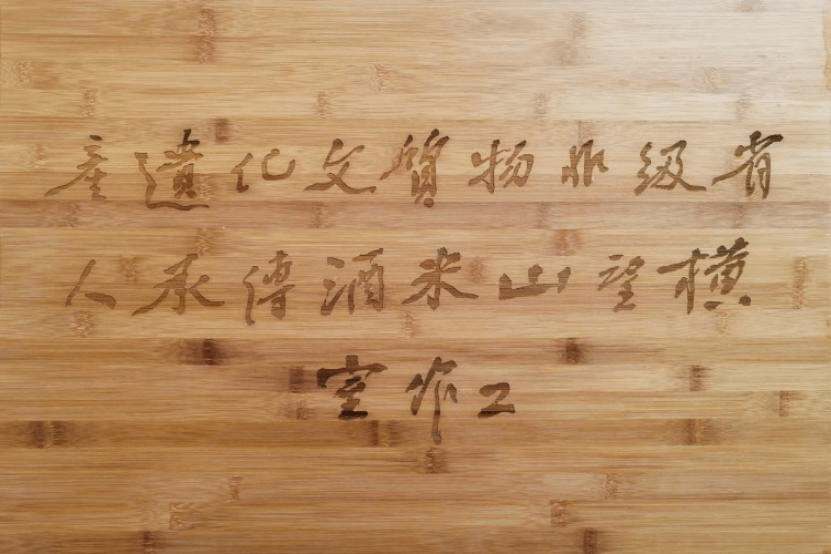 省级非物質文化遺産
横望山米酒傳承人
工作室